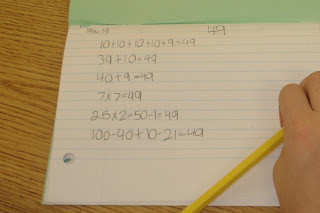 49
10+10+10+10+9=49
39+10=49
40+9=49
7x7=49
25x2=50-1=49
100-40+10-21=49